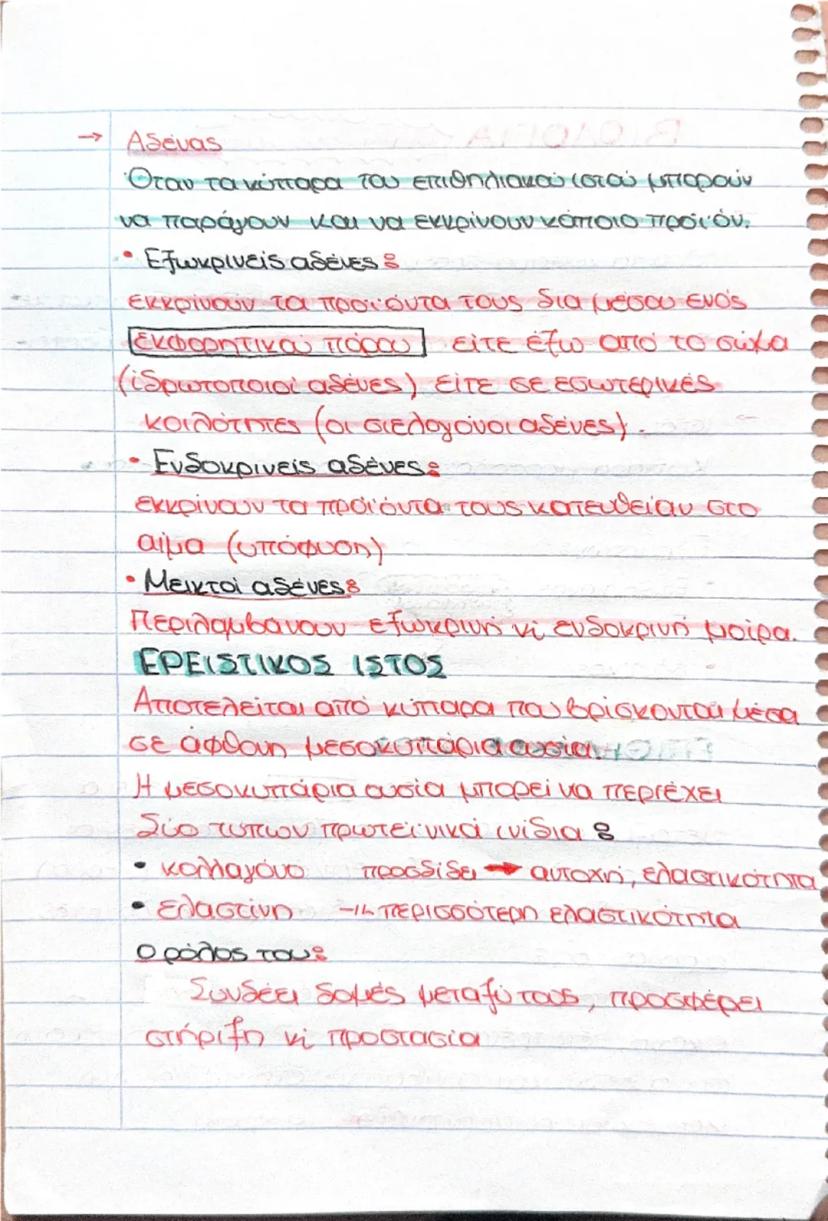 → Αδένας
Όταν τα κύτταρα του επιθηλιακού ιστού μπορούν
να παράγουν και να εκκρίνουν κάποιο προϊόν.
• Εξωκρινείς αδένες:
εκκρίνουν τα προϊόντα τους δια μέσου ενός
εκφορητικού πόρου είτε έξω από το σώμα
(ιδρωτοποιοί αδένες) είτε σε εσωτερικές
κοιλότητες (οι σιελογόνοι αδένες).
• Ενδοκρινείς αδένες:
εκκρίνουν τα προϊόντα τους κατευθείαν στο
αίμα (υπόφυση)
• Μεικτοί αδένες:
Περιλαμβάνουν εξωκρινή κι ενδοκρινή μοίρα.
ΕΡΕΙΣΤΙΚΟΣ ΙΣΤΟΣ
Αποτελείται από κύτταρα που βρίσκονται μέσα
σε άφθονη μεσοκυττάρια ουσία.
Η μεσοκυττάρια ουσία μπορεί να περιέχει
δύο τύπων πρωτεϊνικά ινίδια :
• κολλαγόνο προσδίδει → αντοχή, ελαστικότητα
• ελαστίνη -//- περισσότερη ελαστικότητα
Ο ρόλος του:
Συνδέει δομές μεταξύ τους, προσφέρει
στήριξη κι προστασία